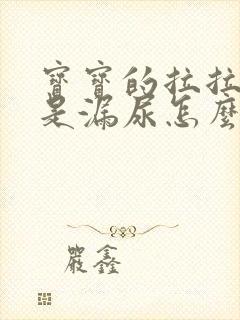 寶寶的拉拉
是漏尿怎麼
嚴鑫